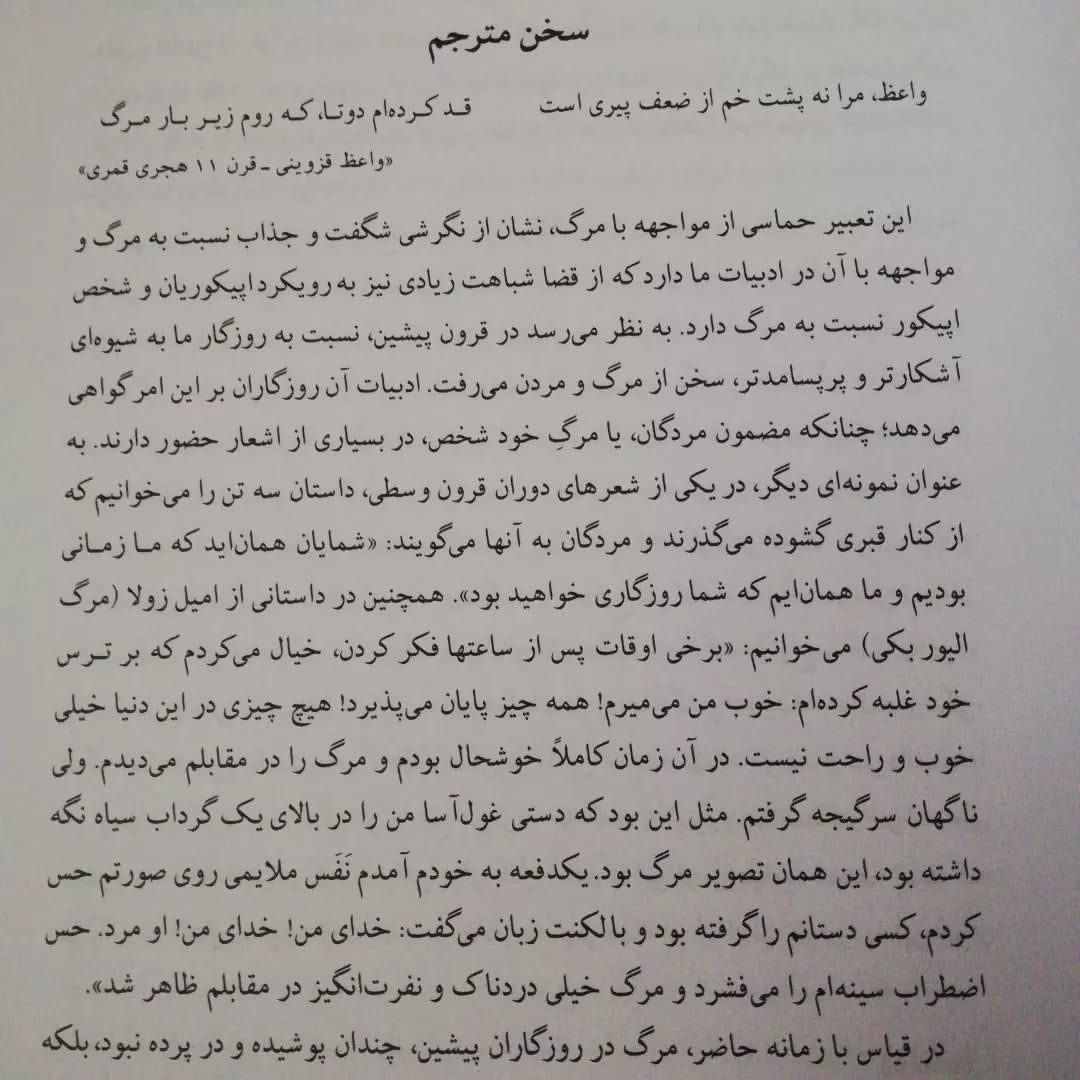 سخن مترجم
واعظ، مرا نه پشت خم از ضعف پیری است قد کرده‌ام دوتا، که روم زیر بار مرگ
«واعظ قزوینی ـ قرن ۱۱ هجری قمری»
این تعبیر حماسی از مواجهه با مرگ، نشان از نگرشی شگفت و جذاب نسبت به مرگ و
مواجهه با آن در ادبیات ما دارد که از قضا شباهت زیادی نیز به رویکرد اپیکوریان و شخص
اپیکور نسبت به مرگ دارد. به نظر می‌رسد در قرون پیشین، نسبت به روزگار ما به شیوه‌ای
آشکارتر و پربسامدتر، سخن از مرگ و مردن می‌رفت. ادبیات آن روزگاران بر این امر گواهی
می‌دهد؛ چنانکه مضمون مردگان، یا مرگِ خود شخص، در بسیاری از اشعار حضور دارند. به
عنوان نمونه‌ای دیگر، در یکی از شعرهای دوران قرون وسطی، داستان سه تن را می‌خوانیم که
از کنار قبری گشوده می‌گذرند و مردگان به آنها می‌گویند: «شمایان همان‌اید که ما زمانی
بودیم و ما همان‌ایم که شما روزگاری خواهید بود». همچنین در داستانی از امیل زولا (مرگ
الیور بکی) می‌خوانیم: «برخی اوقات پس از ساعتها فکر کردن، خیال می‌کردم که بر ترس
خود غلبه کرده‌ام: خوب من می‌میرم! همه چیز پایان می‌پذیرد! هیچ چیزی در این دنیا خیلی
خوب و راحت نیست. در آن زمان کاملاً خوشحال بودم و مرگ را در مقابلم می‌دیدم. ولی
ناگهان سرگیجه گرفتم. مثل این بود که دستی غول‌آسا من را در بالای یک گرداب سیاه نگه
داشته بود، این همان تصویر مرگ بود. یکدفعه به خودم آمدم نَفَس ملایمی روی صورتم حس
کردم، کسی دستانم را گرفته بود و با لکنت زبان می‌گفت: خدای من! خدای من! او مرد. حس
اضطراب سینه‌ام را می‌فشرد و مرگ خیلی دردناک و نفرت‌انگیز در مقابلم ظاهر شد».
در قیاس با زمانه حاضر، مرگ در روزگاران پیشین، چندان پوشیده و در پرده نبود، بلکه